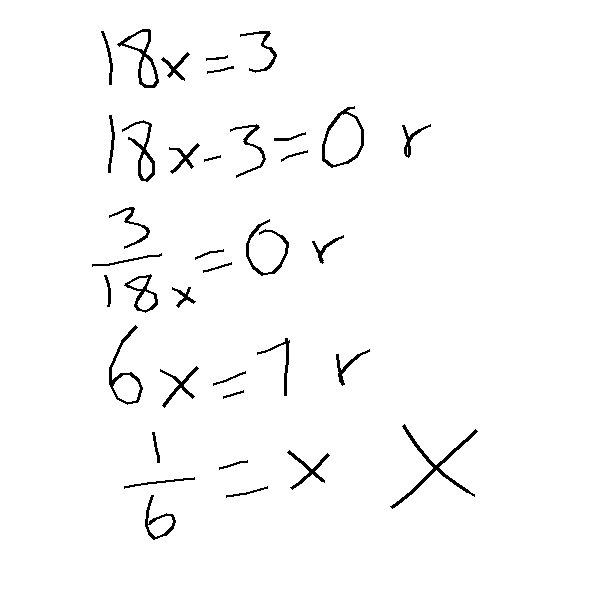 18x=3
18x-3=0 r
3/18x=0 r
6x=1 r
1/6=x X